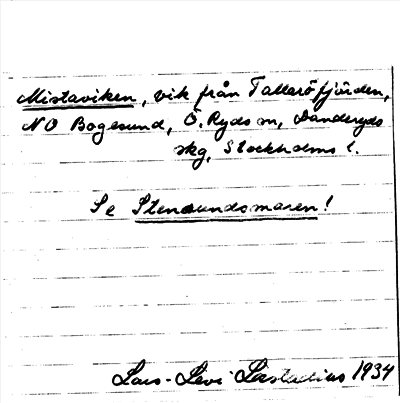 Mistaviken, vik från Tallaröfjärden,
NO Bogesund, Ö. Ryds sn, Danderyds
skg, Stockholms l.
Se Stensundsmaren!
Lars-Levi Læstadius 1934